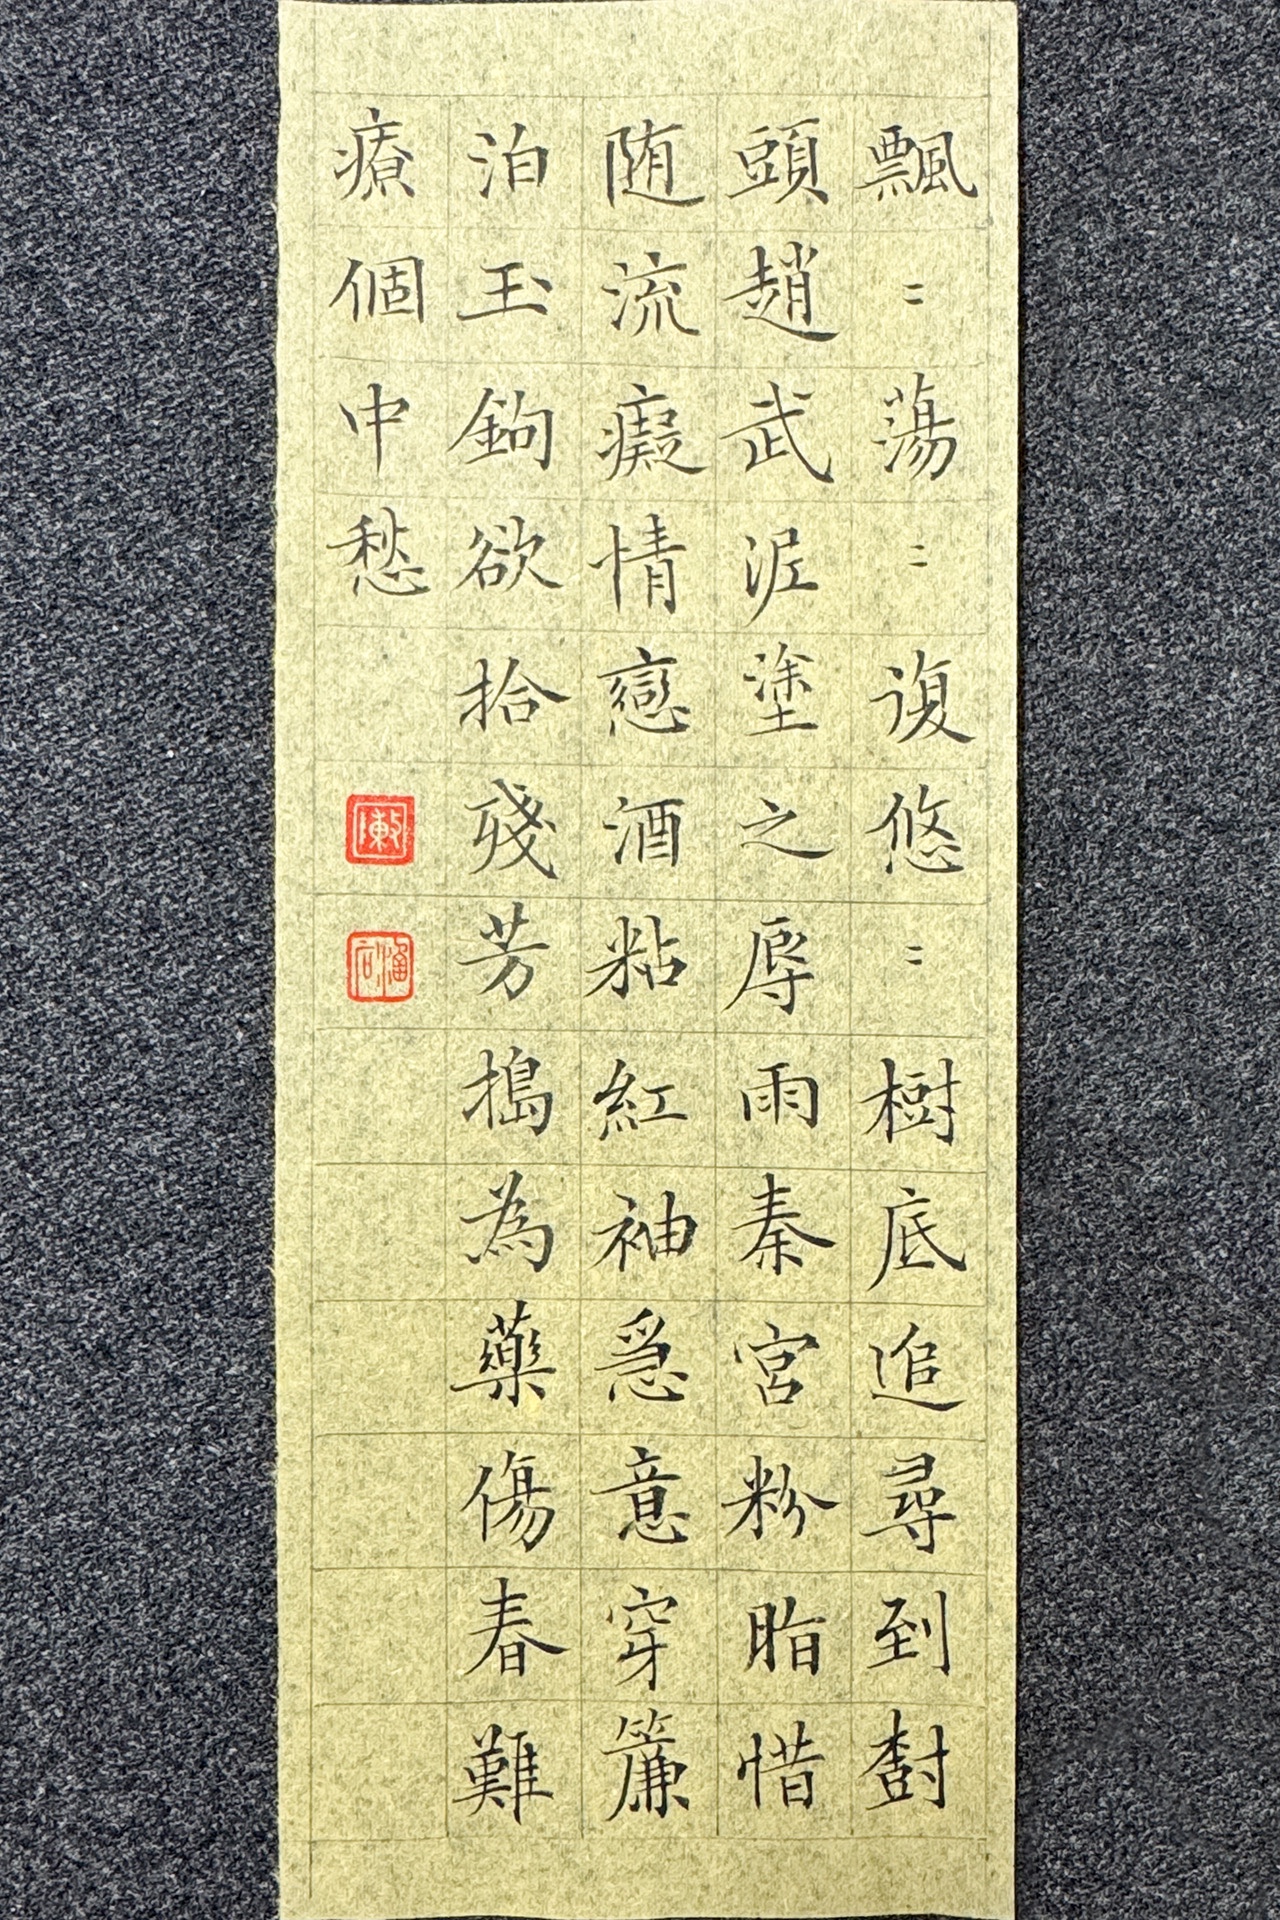 飄〻蕩〻復悠〻樹底追尋到樹
頭趙武泥塗之辱雨秦宮粉脂惜
随流癡情戀酒粘紅袖急意穿簾
泊玉鉤欲拾殘芳搗為藥傷春難
療個中愁